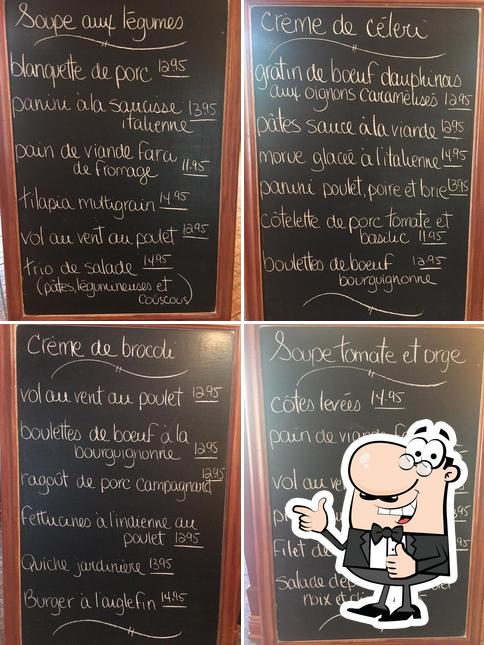 Soupe aux légumes
blanquette de porc 12.95
panini à la saucisse 13.95
italienne
pain de viande farci
de fromage 11.95
tilapia multigrain 14.95
vol au vent au poulet 12.95
trio de salade 14.95
(pâtes, légumineuses et
couscous)
Crème de céleri
gratin de boeuf dauphinois
aux oignons caramélisés 12.95
pâtes sauce à la viande 12.95
morue glacée à l'italienne 14.95
panini poulet, poire et brie 13.95
côtelette de porc tomate et
basilic 11.95
boulettes de boeuf 12.95
bourguignonne
Crème de brocoli
vol au vent au poulet 12.95
boulettes de boeuf à la
bourguignonne 12.95
ragoût de porc campagnard 12.95
fettucines à l'indienne au
poulet 12.95
Quiche jardinière 13.95
Burger à l'aiglefin 14.95
Soupe tomate et orge
côtes levées 14.95
pain de
vol au
Filet de
Salade
noix et